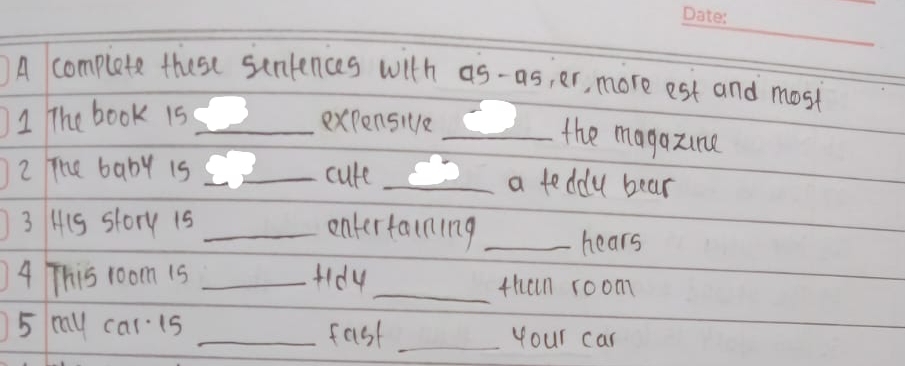 Date:
A complete these sentences with as-as, er, more est and most
1 The book is ______ expensive ______ the magazine
2 The baby is ______ cute ______ a teddy bear
3 His story is ______ entertaining ______ hears
4 This room is ______ tidy ______ than room
5 my car is ______ fast ______ your car